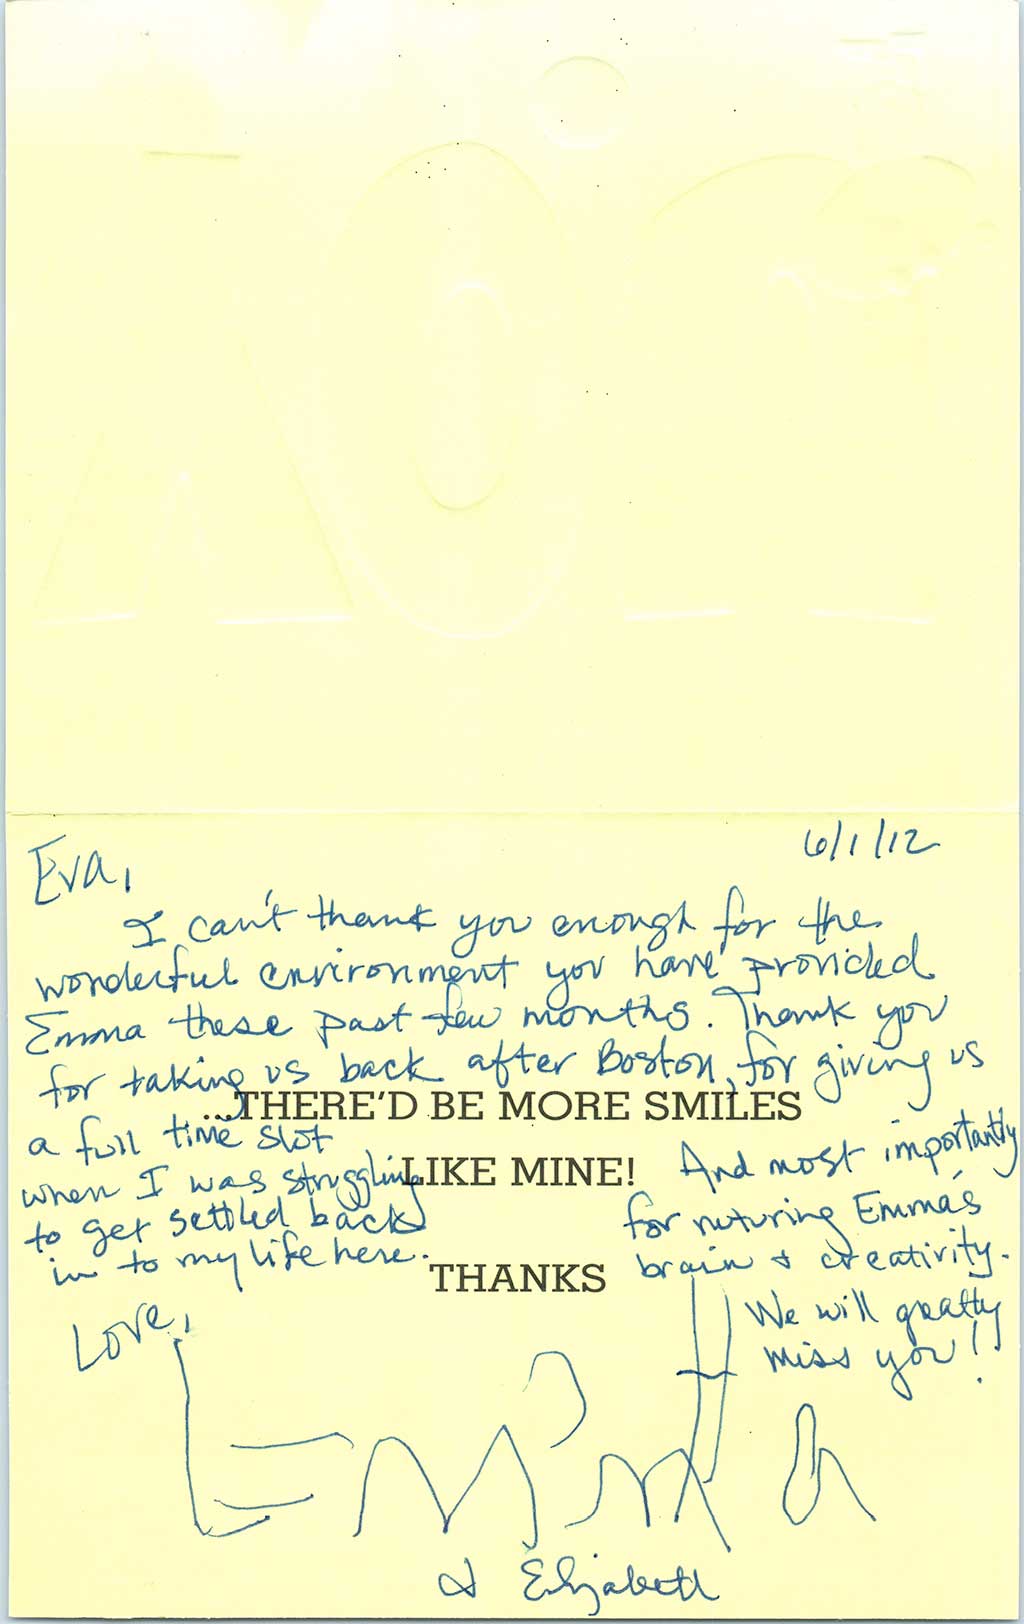 6/1/12
Eva,
I can't thank you enough for the
wonderful environment you have provided
Emma these past few months. Thank you
for taking us back after Boston, for giving us
...THERE'D BE MORE SMILES
a full time slot
LIKE MINE!
when I was struggling
to get settled back
in to my life here.
And most importantly
for nuturing Emma's
brain & creativity.
THANKS
We will greatly
miss you!
Love,
Emma
& Elizabeth